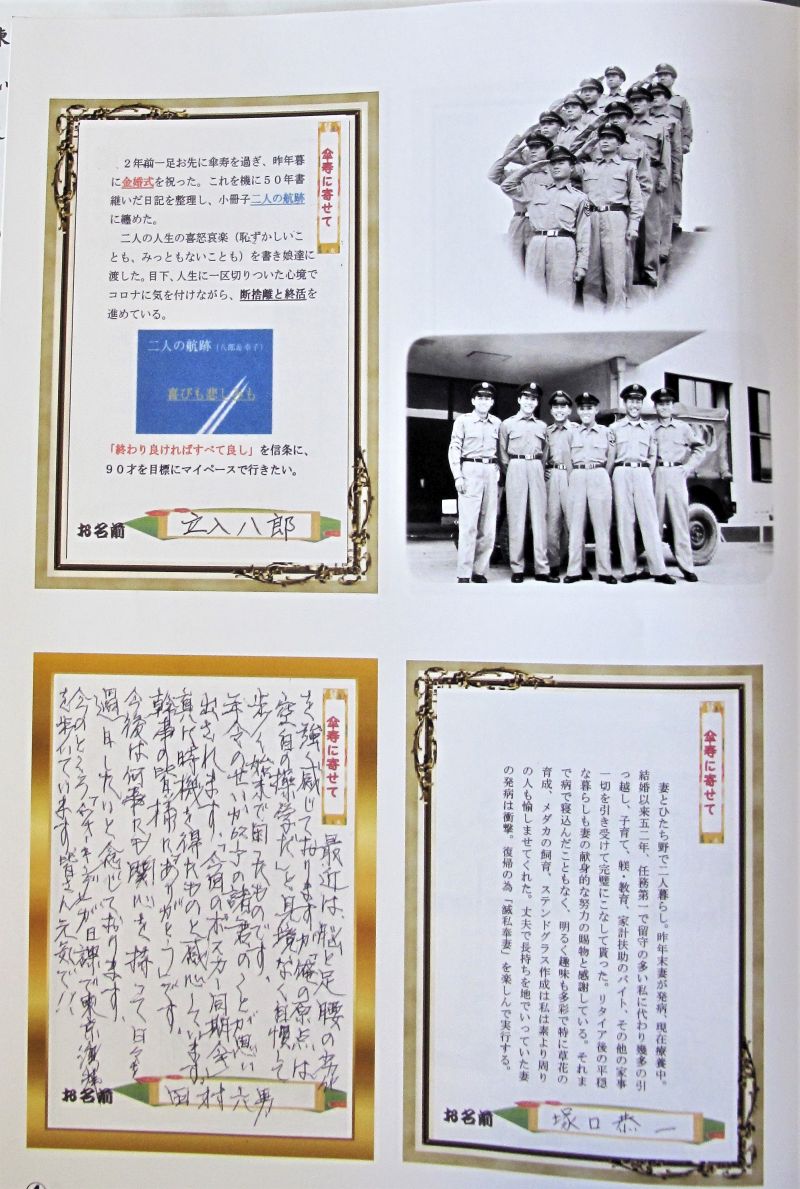 傘寿に寄せて
２年前一足お先に傘寿を過ぎ、昨年暮
に金婚式を祝った。これを機に５０年書
継いだ日記を整理し、小冊子二人の航跡
に纏めた。
二人の人生の喜怒哀楽（恥ずかしいこ
とも、みっともないことも）を書き娘達に
渡した。目下、人生に一区切りついた心境で
コロナに気を付けながら、断捨離と終活を
進めている。
二人の航跡（八郎＆幸子）
喜びも悲しみも
「終わり良ければすべて良し」を信条に、
９０才を目標にマイペースで行きたい。
お名前 立入八郎
傘寿に寄せて
最近は、脳と足腰の劣化
を強く感じておりますが俺の原点は
「空自の操学だ」と見境なく自慢して
歩く始末で困ったものです。
年令のせいか の諸君のことが思い
出されます。「今回のポスカー同期会」
真に時機を得たものと感心しています。
幹事の皆様にありがとうです。
今後は何事にも関心を持って日々を
過ごしたいと念じております。
今のところ が日課で東京湾
を歩いています。皆さん元気で!!
お名前 田村六男
傘寿に寄せて
妻とひたち野で二人暮らし。昨年末妻が発病、現在療養中。
結婚以来五二年、任務第一で留守の多い私に代わり幾多の引
っ越し、子育て、躾・教育、家計扶助のバイト、その他の家事
一切を引き受けて完璧にこなして貰った。リタイア後の平穏
な暮らしも妻の献身的な努力の賜物と感謝している。それま
で病で寝込んだこともなく、明るく趣味も多彩で特に草花の
育成、メダカの飼育、ステンドグラス作成は私は素より周り
の人も愉しませてくれた。丈夫で長持ちを地でいっていた妻
の発病は衝撃。復帰の為「滅私奉妻」を楽しんで実行する。
お名前 塚口恭一